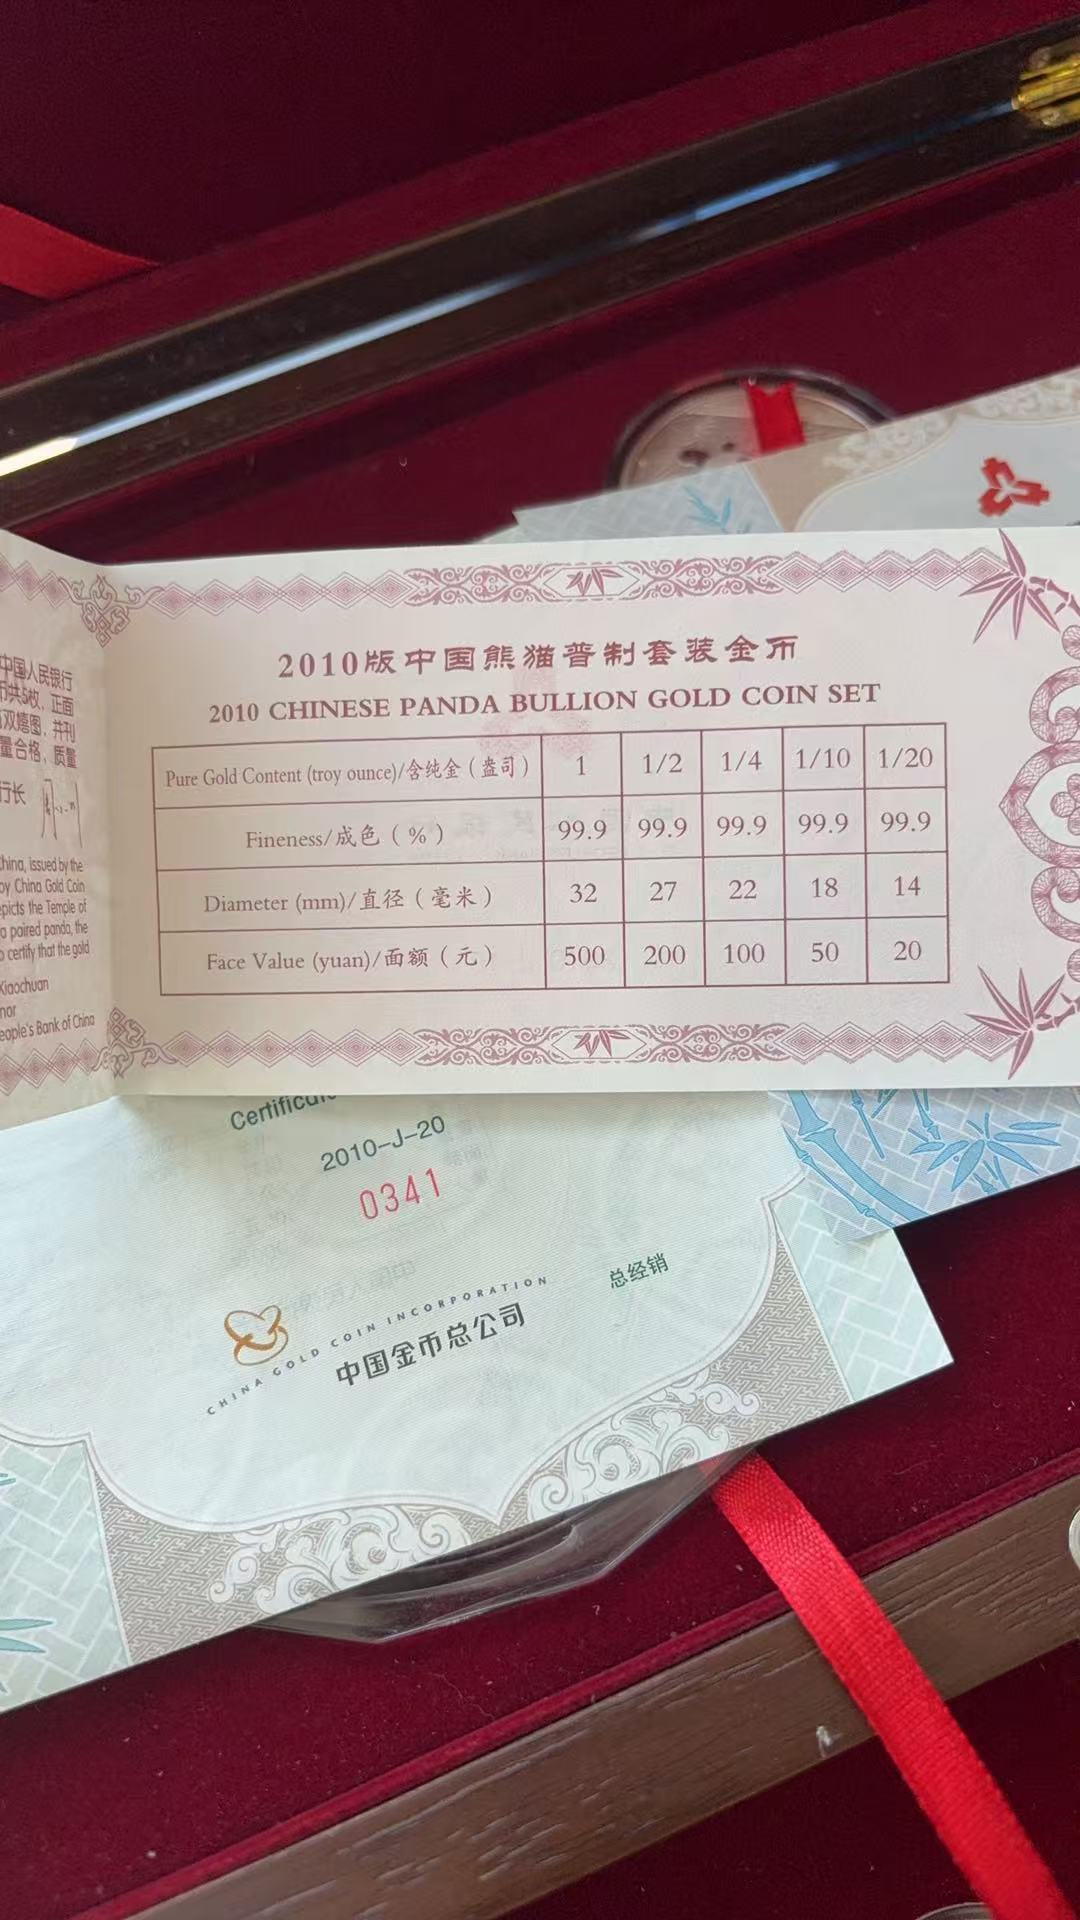 中国人民银行
币共5枚，正面
双嬉图，并刊
量合格，质量
行长
China, issued by the
by China Gold Coin
epicts the Temple of
a paired panda, the
o certify that the gold
Xiaochuan
nor
eople's Bank of China
2010版中国熊猫普制套装金币
2010 CHINESE PANDA BULLION GOLD COIN SET
Pure Gold Content (troy ounce)/含纯金（盎司） 1 1/2 1/4 1/10 1/20
Fineness/成色（%） 99.9 99.9 99.9 99.9 99.9
Diameter (mm)/直径（毫米） 32 27 22 18 14
Face Value (yuan)/面额（元） 500 200 100 50 20
Certificate
2010-J-20
0341
CHINA GOLD COIN INCORPORATION
中国金币总公司
总经销